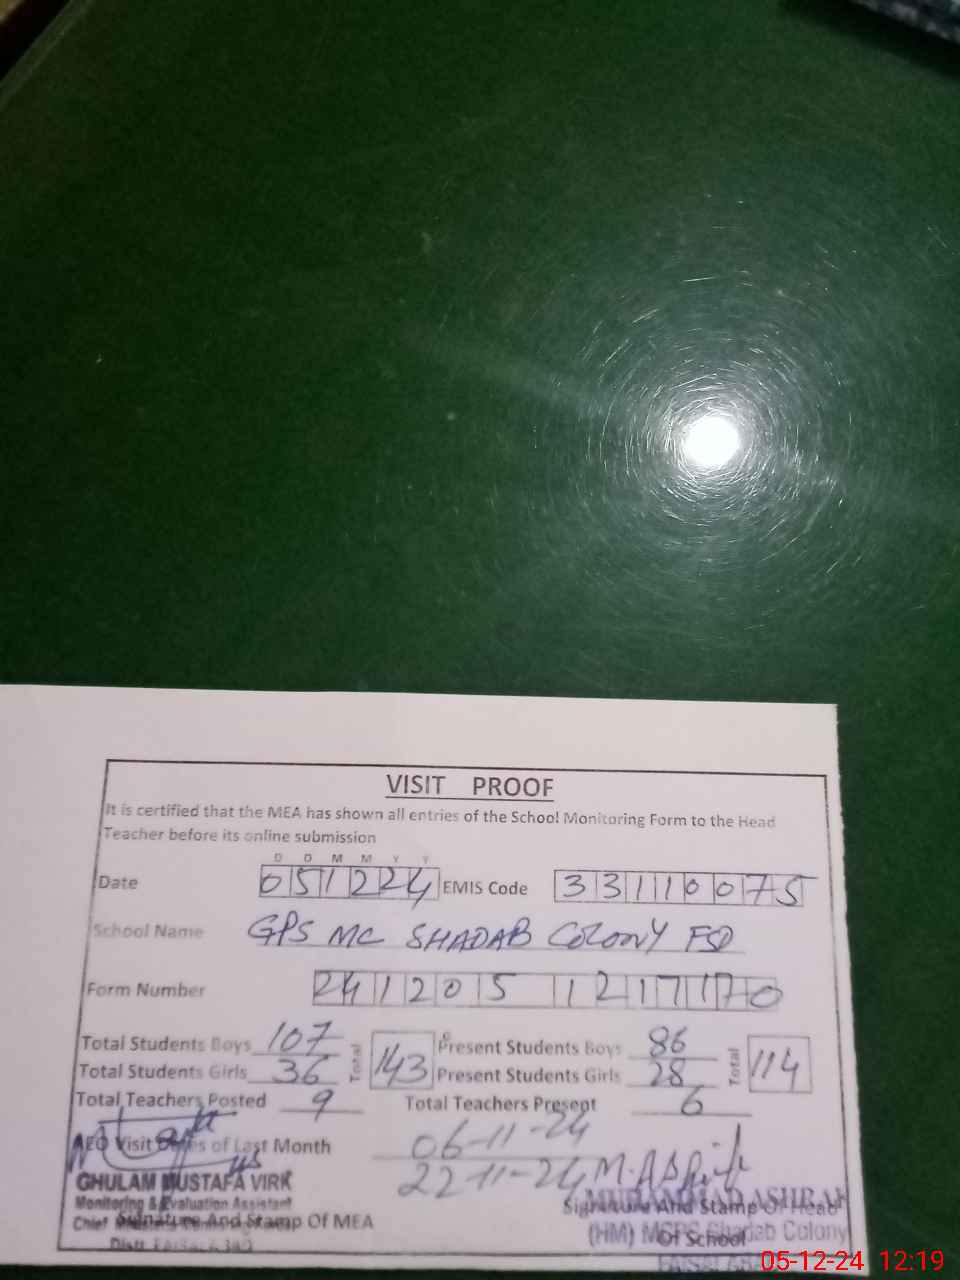 VISIT PROOF
It is certified that the MEA has shown all entries of the School Monitoring Form to the Head
Teacher before its online submission
D D M M Y Y
Date 051224 EMIS Code 33110075
School Name GPS MC SHADAB COLONY FSD
Form Number 241205 1217170
Total Students Boys 107 Total 143 Present Students Boys 86 Total 114
Total Students Girls 36 Present Students Girls 28
Total Teachers Posted 9 Total Teachers Present 6
AEO Visit Dates of Last Month 06-11-24
22-11-24 M.AShraf
GHULAM MUSTAFA VIRK
Monitoring & Evaluation Assistant
MUHAMMAD ASHRAF
Signature And Stamp Of Head
Chief
Signature And Stamp Of MEA
(HM) MCPS Shadab Colony
Of School
05-12-24 12:19